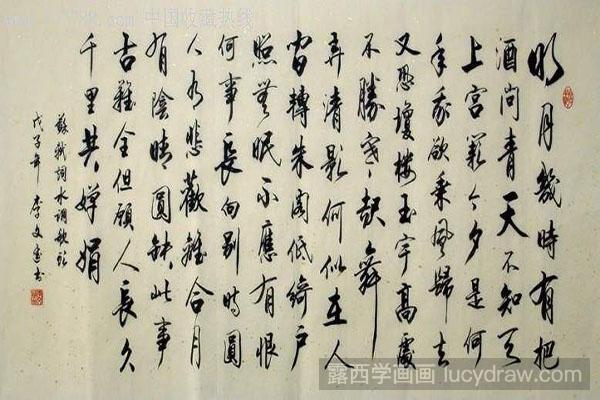 中国收藏热线
明月幾時有把
酒問青天不知天
上宮闕今夕是何
年我欲乘風歸去
又恐瓊樓玉宇高處
不勝寒起舞
弄清影何似在人
間轉朱閣低綺戶
照無眠不應有恨
何事長向別時圓
人有悲歡離合月
有陰晴圓缺此事
古難全但願人長久
千里共嬋娟
蘇軾詞水調歌頭
戊子年李文書
露西学画画 lucydraw.com